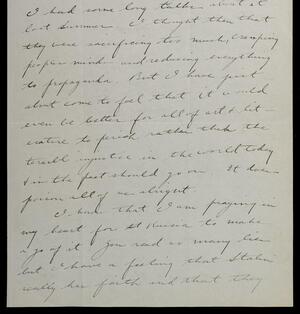 I had some long talks about it
last summer. I thought then that
they were sacrificing too much, cramping
people's minds and reducing everything
to propaganda. But I have just
about come to feel that it would
even be better for all of art & lit-
erature to perish rather than the
terrible injustice in the world today
& in the past should go on. It does
poison all of us alright.
I know that I am praying in
my heart for Russia to make
a go of it. You read so many lies
but I have a feeling that Stalin
really has faith and that they